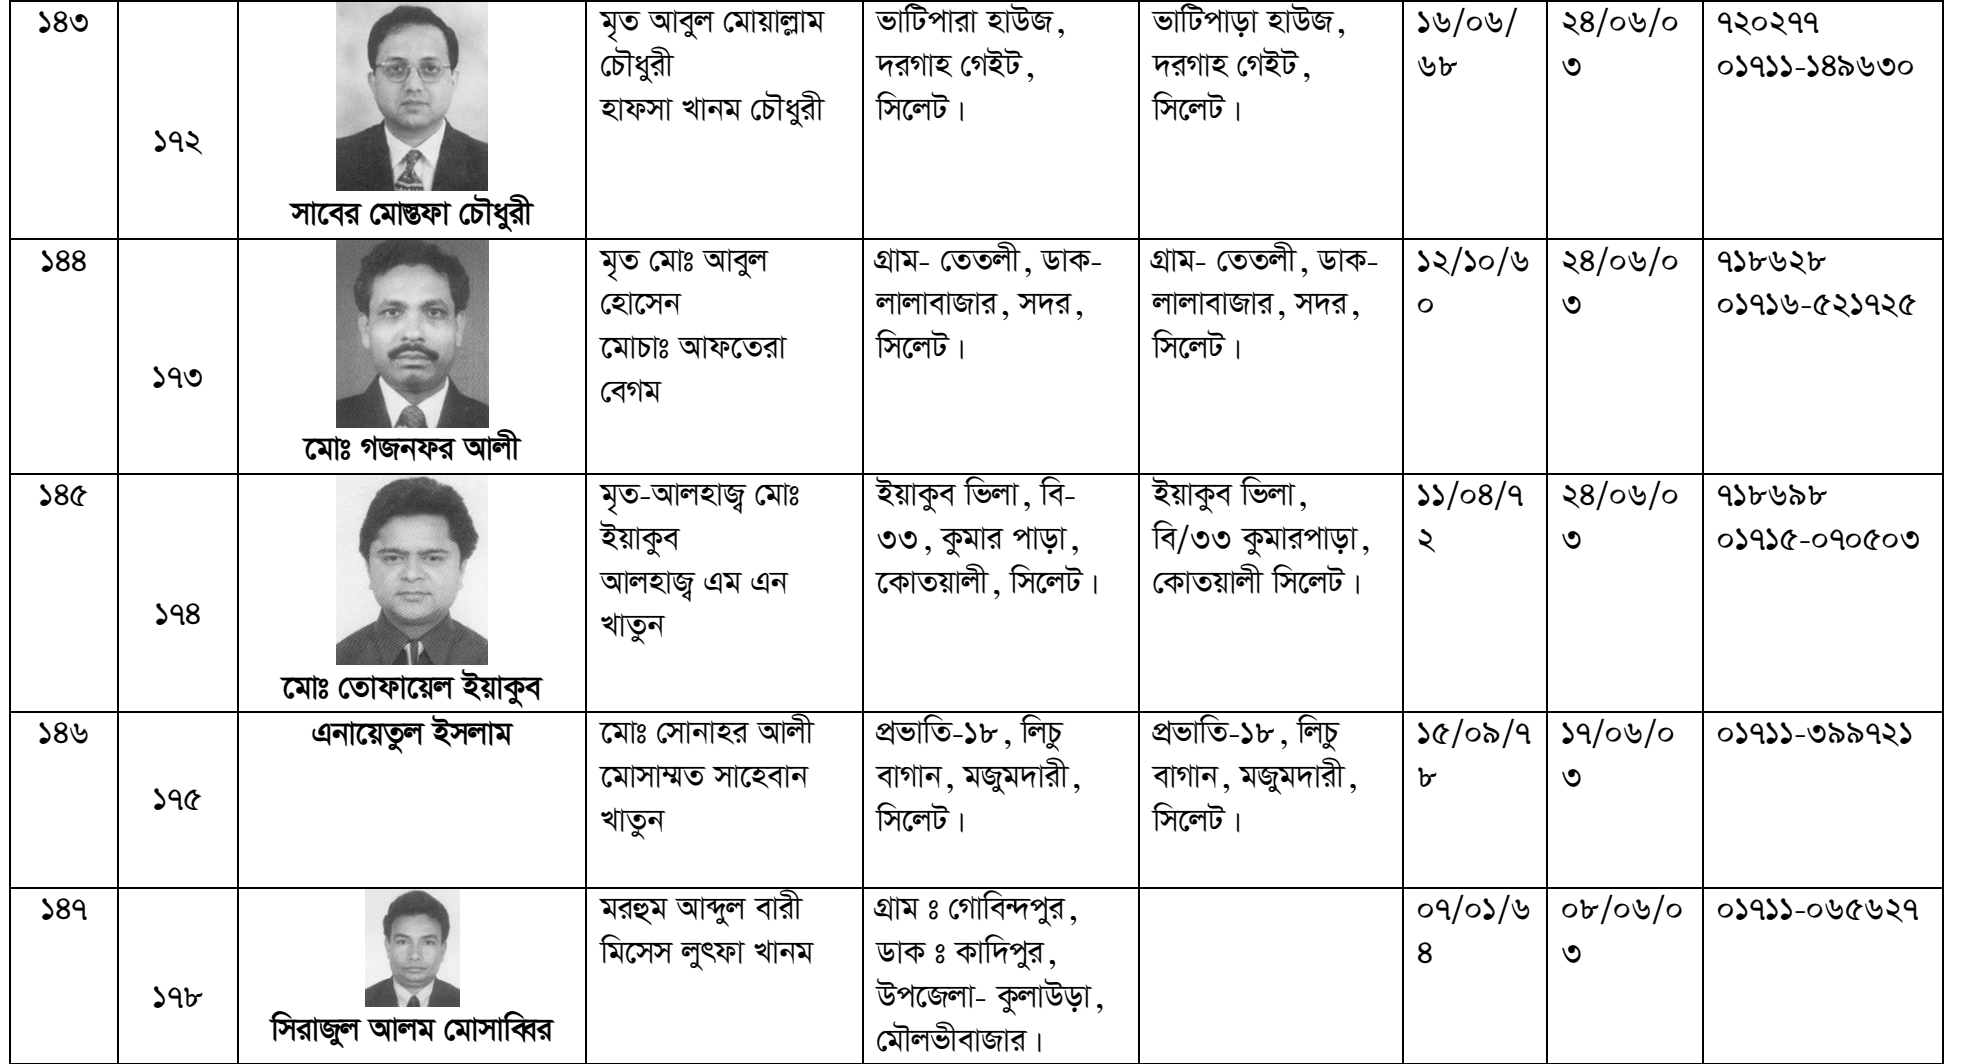 ১৪৩
১৭২
সাবের মোস্তফা চৌধুরী
মৃত আবুল মোয়াল্লাম
চৌধুরী
হাফসা খানম চৌধুরী
ভাটিপারা হাউজ,
দরগাহ গেইট,
সিলেট।
ভাটিপাড়া হাউজ,
দরগাহ গেইট,
সিলেট।
১৬/০৬/
৬৮
২৪/০৬/০
৩
৭২০২৭৭
০১৭১১-১৪৯৬৩০
১৪৪
১৭৩
মোঃ গজনফর আলী
মৃত মোঃ আবুল
হোসেন
মোচাঃ আফতেরা
বেগম
গ্রাম- তেতলী, ডাক-
লালাবাজার, সদর,
সিলেট।
গ্রাম- তেতলী, ডাক-
লালাবাজার, সদর,
সিলেট।
১২/১০/৬
০
২৪/০৬/০
৩
৭১৮৬২৮
০১৭১৬-৫২১৭২৫
১৪৫
১৭৪
মোঃ তোফায়েল ইয়াকুব
মৃত-আলহাজ্ব মোঃ
ইয়াকুব
আলহাজ্ব এম এন
খাতুন
ইয়াকুব ভিলা, বি-
৩৩, কুমার পাড়া,
কোতয়ালী, সিলেট।
ইয়াকুব ভিলা,
বি/৩৩ কুমারপাড়া,
কোতয়ালী সিলেট।
১১/০৪/৭
২
২৪/০৬/০
৩
৭১৮৬৯৮
০১৭১৫-০৭০৫০৩
১৪৬
১৭৫
এনায়েতুল ইসলাম
মোঃ সোনাহর আলী
মোসাম্মত সাহেবান
খাতুন
প্রভাতি-১৮, লিচু
বাগান, মজুমদারী,
সিলেট।
প্রভাতি-১৮, লিচু
বাগান, মজুমদারী,
সিলেট।
১৫/০৯/৭
৮
১৭/০৬/০
৩
০১৭১১-৩৯৯৭২১
১৪৭
১৭৮
সিরাজুল আলম মোসাব্বির
মরহুম আব্দুল বারী
মিসেস লুৎফা খানম
গ্রাম ঃ গোবিন্দপুর,
ডাক ঃ কাদিপুর,
উপজেলা- কুলাউড়া,
মৌলভীবাজার।
০৭/০১/৬
৪
০৮/০৬/০
৩
০১৭১১-০৬৫৬২৭